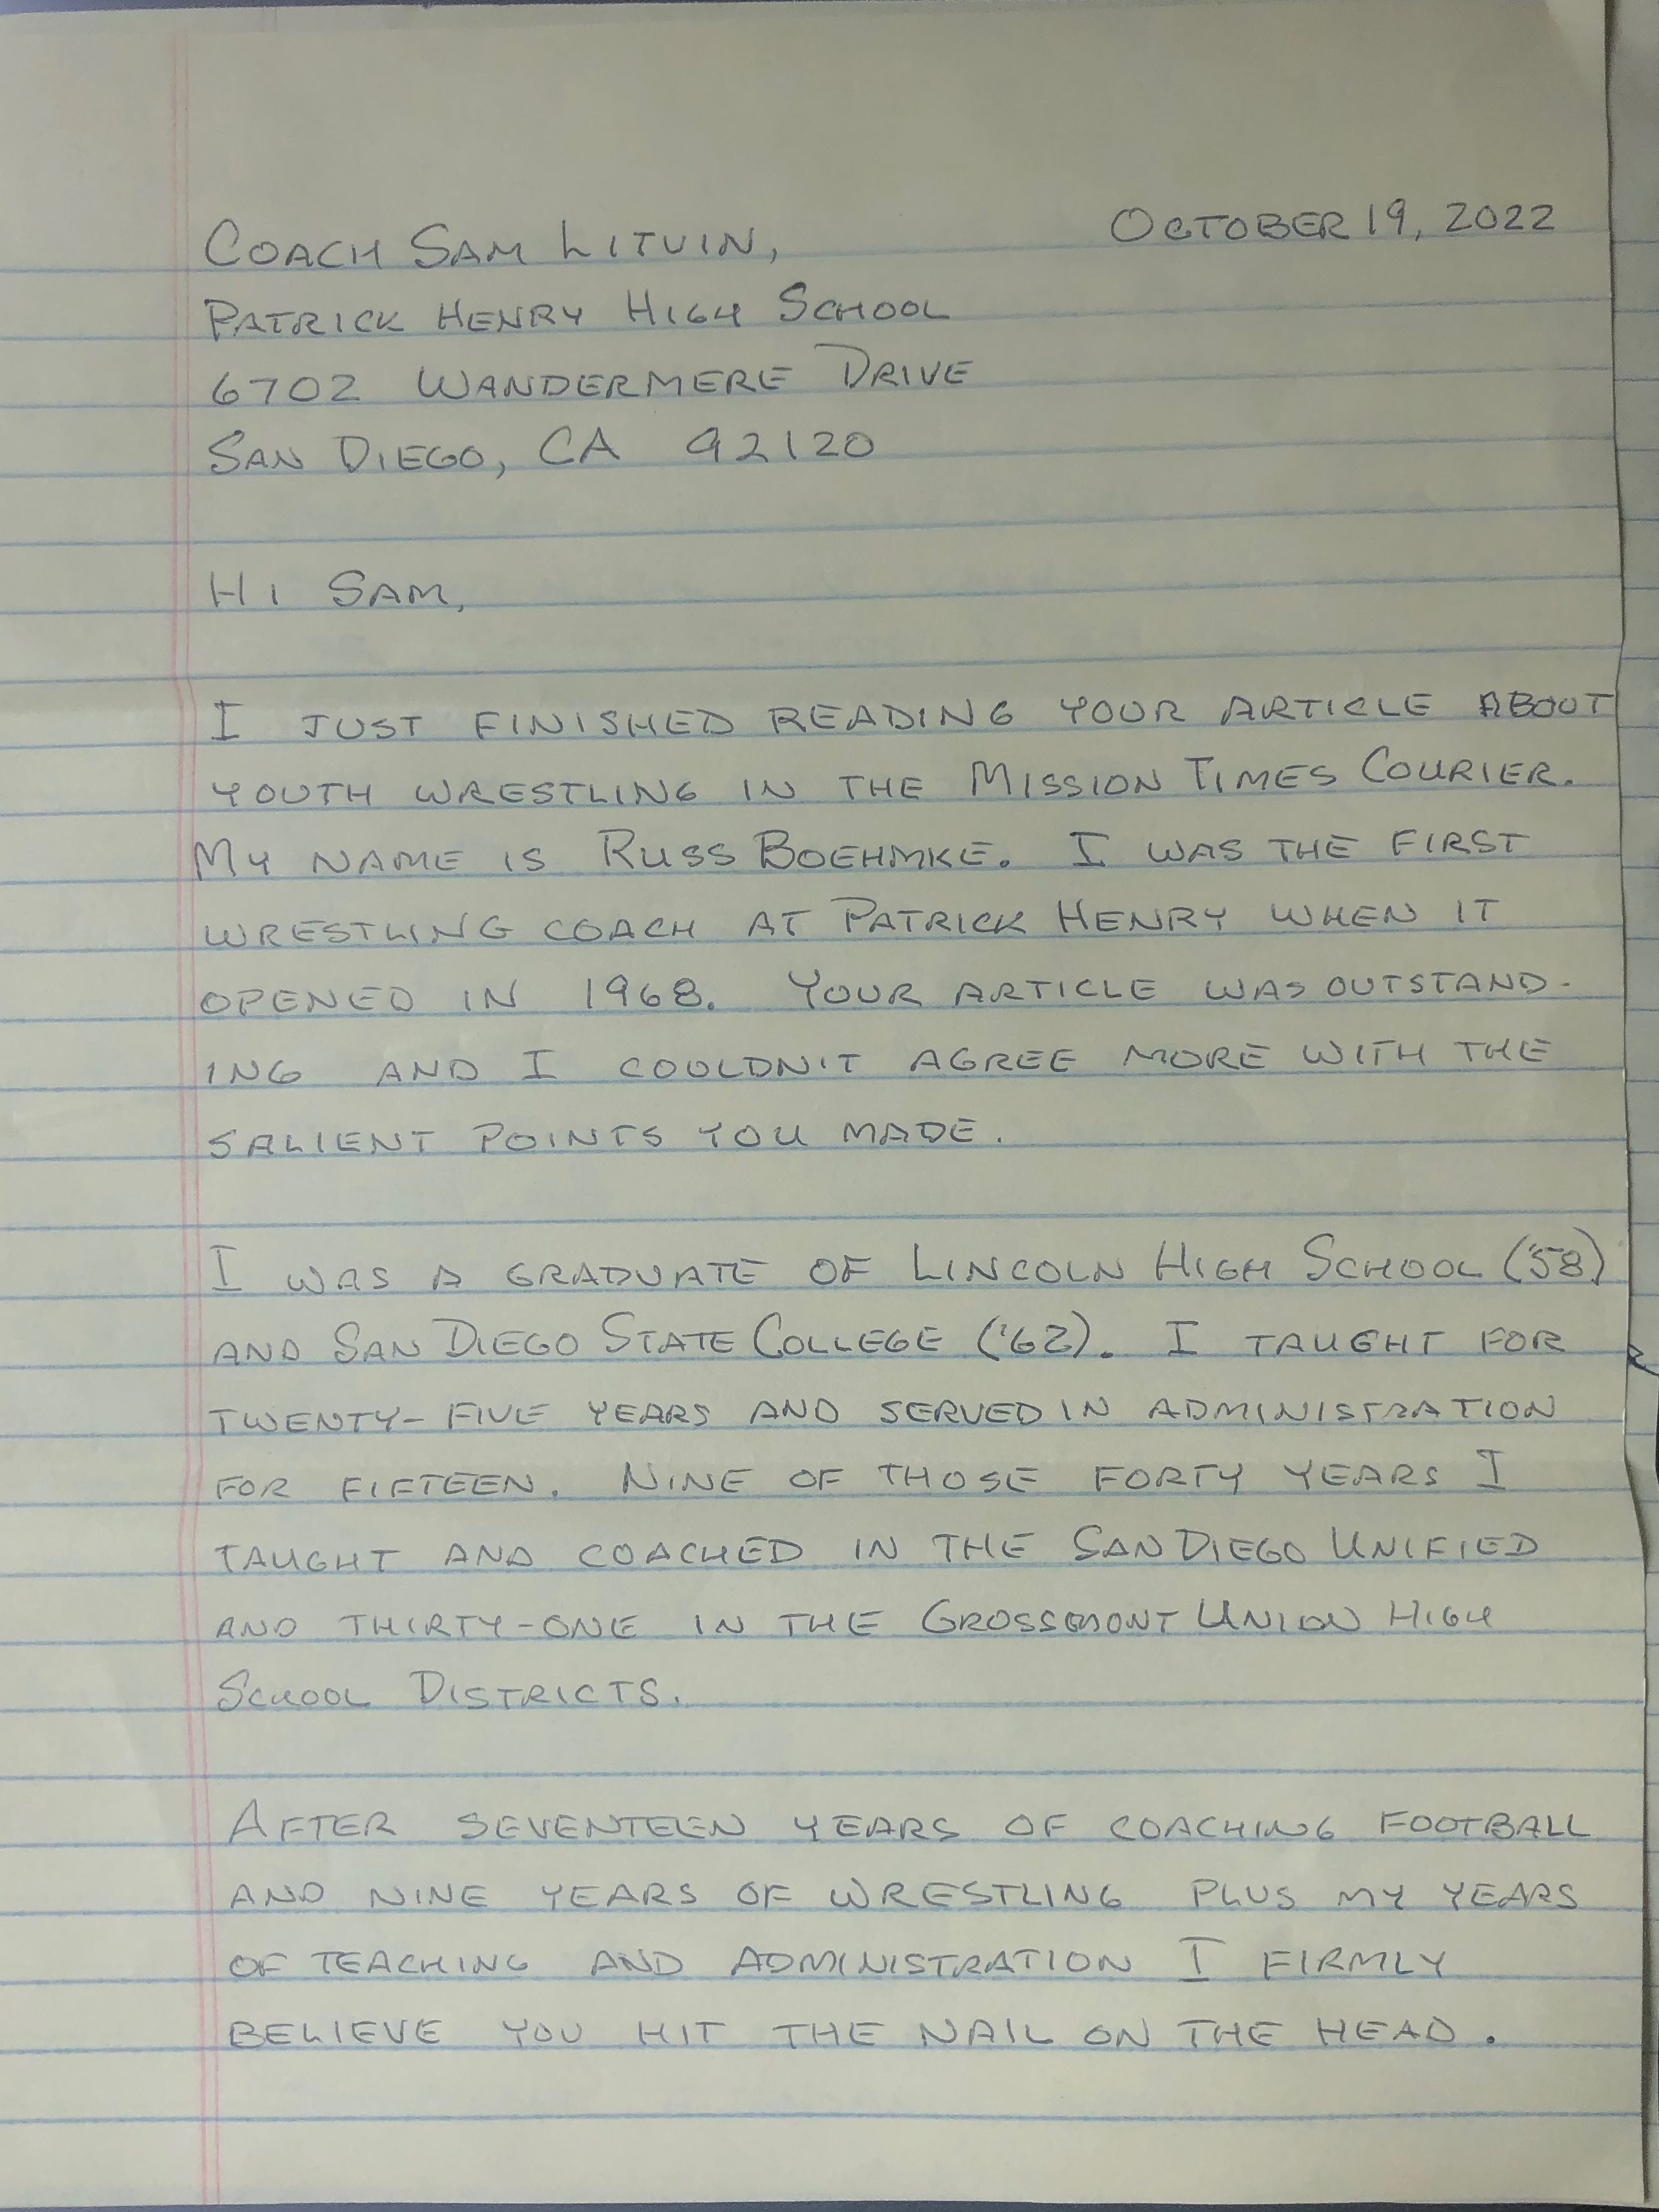 COACH SAM LITVIN,
OCTOBER 19, 2022
PATRICK HENRY HIGH SCHOOL
6702 WANDERMERE DRIVE
SAN DIEGO, CA 92120
HI SAM,
I JUST FINISHED READING YOUR ARTICLE ABOUT
YOUTH WRESTLING IN THE MISSION TIMES COURIER.
MY NAME IS RUSS BOEHMKE. I WAS THE FIRST
WRESTLING COACH AT PATRICK HENRY WHEN IT
OPENED IN 1968. YOUR ARTICLE WAS OUTSTAND-
ING AND I COULDN'T AGREE MORE WITH THE
SALIENT POINTS YOU MADE.
I WAS A GRADUATE OF LINCOLN HIGH SCHOOL ('58)
AND SAN DIEGO STATE COLLEGE ('62). I TAUGHT FOR
TWENTY-FIVE YEARS AND SERVED IN ADMINISTRATION
FOR FIFTEEN. NINE OF THOSE FORTY YEARS I
TAUGHT AND COACHED IN THE SAN DIEGO UNIFIED
AND THIRTY-ONE IN THE GROSSMONT UNION HIGH
SCHOOL DISTRICTS.
AFTER SEVENTEEN YEARS OF COACHING FOOTBALL
AND NINE YEARS OF WRESTLING PLUS MY YEARS
OF TEACHING AND ADMINISTRATION I FIRMLY
BELIEVE YOU HIT THE NAIL ON THE HEAD.